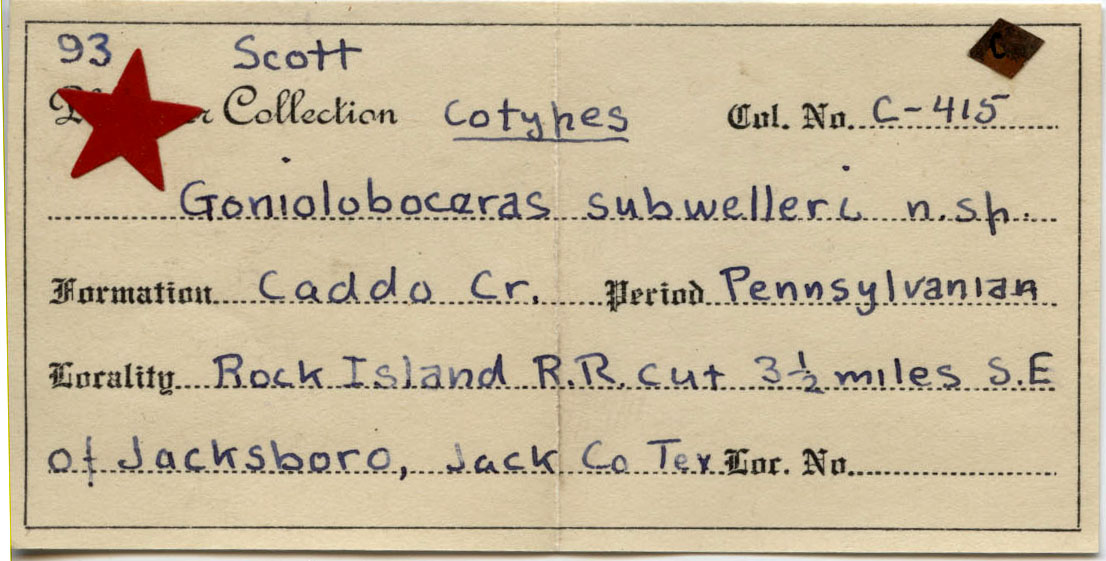 93 Scott
Collection Cotypes Col. No. C-415
Gonioloboceras subwelleri n.sp.
Formation Caddo Cr. Period Pennsylvanian
Locality Rock Island R.R. cut 3½ miles S.E
of Jacksboro, Jack Co Tex Loc. No.
C